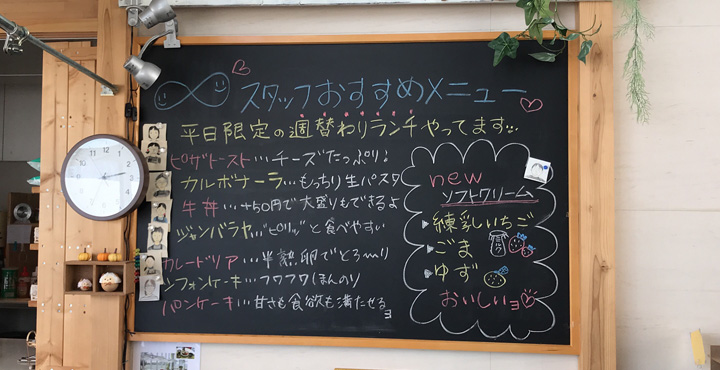 スタッフおすすめメニュー
平日限定の週替わりランチやってます
ピザトースト…チーズたっぷり♪
カルボナーラ…もっちり生パスタ
牛丼…+50円で大盛りもできるよ
ジャンバラヤ…"ピリッ"と食べやすい
カレードリア…半熟卵でとろ〜り
シフォンケーキ…フワフワほんのり
パンケーキ…甘さも食欲も満たせるョ
new
ソフトクリーム
▶練乳いちご
▶ごま
ミルク
▶ゆず
おいしいョ♡
12
11
10
9
8
7
6
5
4
3
2
1